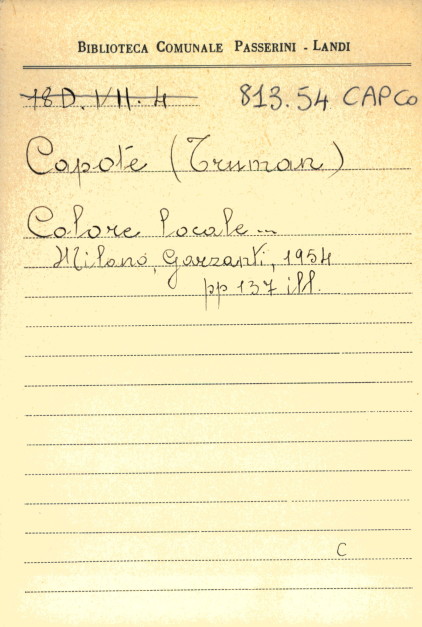 BIBLIOTECA COMUNALE PASSERINI - LANDI
18 D. VII. 4 813.54 CAPCo
Capote (Truman)
Colore locale
Milano, Garzanti, 1954
pp 137 ill.
C